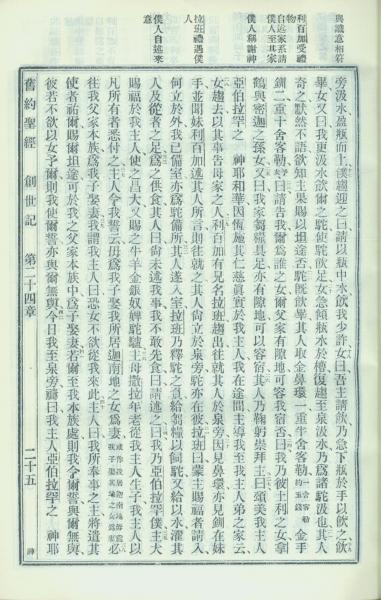 與識意相符
利百加受禮物
自述家系請僕人至其家
僕人稱謝神
拉班禮遇僕人
僕人自述來意
旁汲水盈瓶而上僕趨迎之曰請以瓶中水飲我少許女曰吾主請飲乃急下瓶於手以飲之飲
畢女又曰我更汲水飲爾之駝使駝飲足女急傾瓶水於槽復趨至泉汲水乃爲諸駝汲也其人
奇之默然不語欲知主果賜以坦途否駝既飲畢其人取金鼻環一重半舍客勒 舍客勒約五錢 金手
釧二重十舍客勒予曰請告我爾爲誰之女爾父家有隙地可容我宿否曰我乃彼土利之女拿
鶴與密迦之孫女又曰我家芻糧具足亦有隙地可以容宿其人乃鞠躬崇拜主曰頌美我主人
亞伯拉罕之 神耶和華因恆施其仁慈眞實於我主人我在途間主導我至我主人弟之家云
女趨去以其事告母家之人利百加有兄名拉班趨出往就其人於泉旁因見鼻環亦見釧在妹
手並聞妹利百加述其人所言則往就之其人尚立於泉旁駝亦在彼拉班曰蒙主賜福者請入
何立於外我已備室亦爲駝備所其人遂入室拉班乃釋駝之負給芻糧以飼駝又給以水濯其
人及從者之足爲之供食其人曰尚未述我事我不敢先食曰請述之曰我乃亞伯拉罕僕主大
賜福於我主人使之昌大又賜之牛羊金銀奴婢駝驢主母撒拉年老從我主人生子我主人以
凡所有者悉付之主人令我誓云毋爲我子娶我所居迦南地之女爲妻 或作我居迦南地毋爲我子娶其地之女爲妻 必
往我父家本族爲我子娶妻我謂我主人曰恐女不欲從我來此主人曰我所奉事之主將遣其
使者祐爾賜爾坦途可於我之父家本族中爲子娶妻若爾至我本族處則我令爾誓與爾無與
彼若不欲以女予爾則我使爾誓亦與爾無與今日我至泉旁禱曰我主人亞伯拉罕之 神耶
舊約聖經 創世記 第二十四章 二十五 神